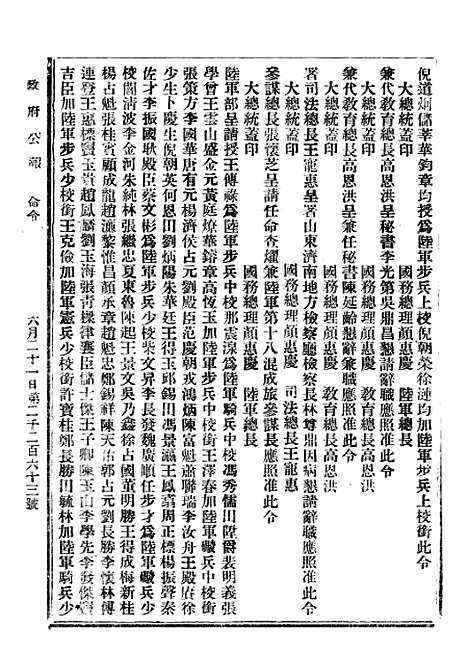 倪道烱儲莘華鈞章均授爲陸軍步兵上校倪朝榮徐漣均加陸軍步兵上校銜此令
大總統蓋印　國務總理顏惠慶　陸軍總長
兼代教育總長高恩洪呈秘書李光第吳鼎昌懇請辭職應照准此令
大總統蓋印　國務總理顏惠慶　教育總長高恩洪
兼代教育總長高恩洪呈兼任秘書陳延齡懇辭兼職應照准此令
大總統蓋印　國務總理顏惠慶　教育總長高恩洪
署司法總長王寵惠呈署山東濟南地方檢察廳檢察長林尊鼎因病懇請辭職應照准此令
大總統蓋印　國務總理顏惠慶　司法總長王寵惠
參謀總長張懷芝呈請任命查燿兼陸軍第十八混成旅參謀長應照准此令
大總統蓋印　國務總理顏惠慶　陸軍總長
陸軍部呈請授王傅祿爲陸軍步兵中校那震淥爲陸軍騎兵中校馮秀儒田陞爵裴明義張
學曾王雲山盛金元黃庭燎華鎔章高恆玉加陸軍步兵中校銜王澤春加陸軍礮兵中校銜
張策方李國華唐有元楊濟虞光閻殿臣范全勝戎鴻炳陳富魁蕭瑞李汝舟王殿府徐
少生卜慶生倪朝英何恩田劉炳陽朱華廷王得玉邱錫田馮景瀛王鳳嘉周正標楊振聲秦
佐才李振國耿殿臣蔡文彬爲陸軍步兵少校柴文昇李長發魏廣順任步才爲陸軍礮兵少
校閻清波李金河朱純林張繼忠夏東魯陳起王景文吳乃鑫徐占國董明勝王得成梅新桂
楊占魁張桂賓顧成龍趙濂黎惟昌顏承章趙魁忠鄭錫祥陳天佑郭占元劉長勝李懷林傅
連登王惠標賢玉貴趙鳳麟劉玉海張青標津裏臣儲士傑王子卿陳玉山李學先李發傑
吉臣加陸軍步兵少校銜王克儉加陸軍憲兵少校銜許寶桂鄭長勝田毓林加陸軍騎兵少
政府公報　命令
六月二十一日第二千二百六十三號